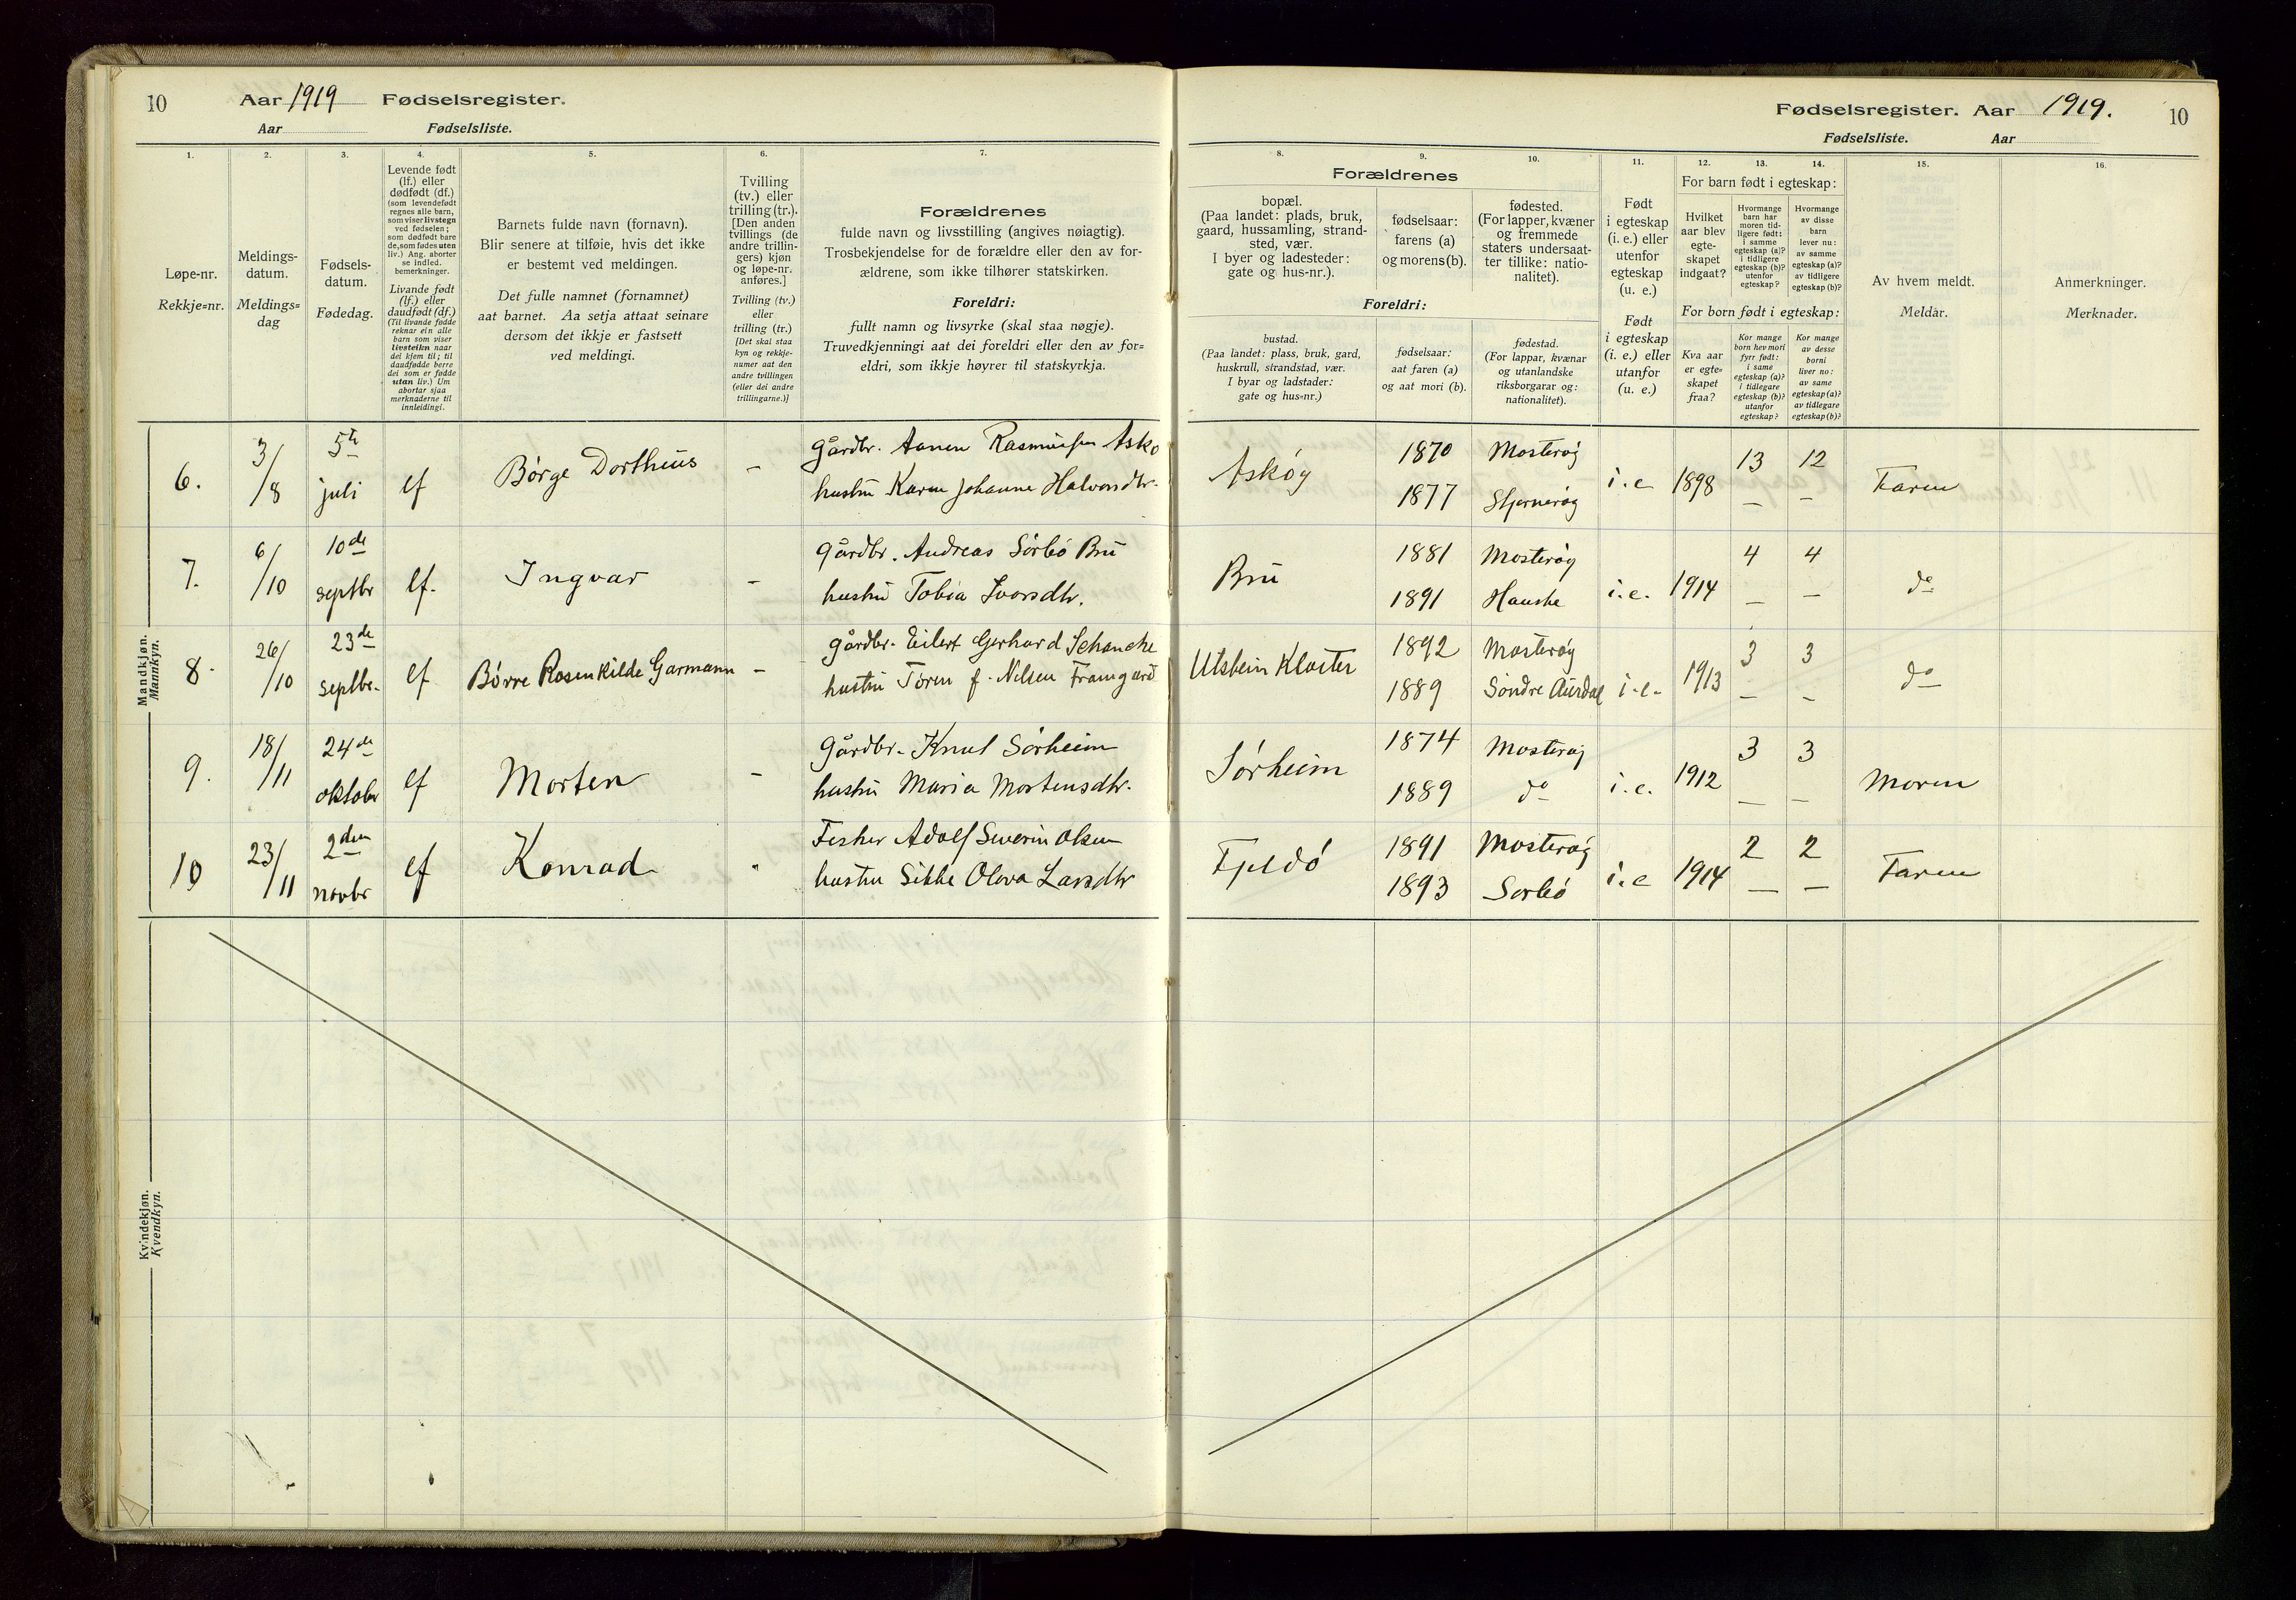 10 Aar 1919 Fødselsregister.
Aar Fødselsliste.
Fødselsregister. Aar 1919. 10
Fødselsliste. Aar
1.
Løpe-nr.
Rekkje=nr.
2.
Meldings-
datum.
Meldings=
dag
3.
Fødsels-
datum.
Fødedag.
4.
Levende født
(lf.) eller
dødfødt (df.)
(som levendefødt
regnes alle barn,
som viser livstegn
ved fødselen;
som dødfødt bare
de, som fødes uten
liv.) Ang. aborter
se indled.
bemerkninger.
Livande født
(lf.) eller
daudfødt (df.)
(Til livande fødde
reknar ein alle
barn som viser
livsteikn naar
dei kjem til; til
daudfødde berre
dei som er fødde
utan liv.) Um
abortar sjaa
merknaderne til
innleidingi.
5.
Barnets fulde navn (fornavn).
Blir senere at tilføie, hvis det ikke
er bestemt ved meldingen.
Det fulle namnet (fornamnet)
aat barnet. Aa setja attaat seinare
dersom det ikkje er fastsett
ved meldingi.
6.
Tvilling
(tv.) eller
trilling (tr.).
[Den anden
tvillings (de
andre trillin-
gers) kjøn
og løpe-nr.
anføres.]
Tvilling (tv.)
eller
trilling (tr.)
[Det skal staa
kyn og rekkje-
numer aat den
andre tvillingen
(eller dei andre
trillingarne.)]
7.
Forældrenes
fulde navn og livsstilling (angives nøiagtig).
Trosbekjendelse for de forældre eller den av for-
ældrene, som ikke tilhører statskirken.
Foreldri:
fullt namn og livsyrke (skal staa nøgje).
Truvedkjenningi aat dei foreldri eller den av for=
eldri, som ikkje høyrer til statskyrkja.
Forældrenes
8.
bopæl.
(Paa landet: plads, bruk,
gaard, hussamling, strand-
sted, vær.
I byer og ladesteder:
gate og hus-nr.).
9.
fødselsaar:
farens (a)
og morens (b).
10.
fødested.
(For lapper, kvæner
og fremmede
staters undersaat-
ter tillike: natio-
nalitet).
Foreldri:
bustad.
(Paa landet: plass, bruk, gard,
huskrull, strandstad, vær.
I byar og ladstader:
gate og hus=nr.)
fødselsaar:
aat faren (a)
og aat mori (b).
fødestad.
(For lappar, kvænar
og utanlandske
riksborgarar og:
nationalitet).
11.
Født
i egteskap
(i. e.) eller
utenfor
egteskap
(u. e.)
Født
i egteskap
(i. e.) eller
utanfor
(u. e.)
12. 13. 14.
For barn født i egteskap:
Hvilket
aar blev
egte-
skapet
indgaat?
Hvormange
barn har
moren tid-
ligere født:
i samme
egteskap (a)?
i tidligere
egteskap (b)?
utenfor
egteskap?
Hvormange
av disse
barn
lever nu:
av samme
egteskap (a)?
av tidligere
egteskap (b)?
For born født i egteskap:
Kva aar
er egte-
skapet
fraa?
Kor mange
born hev mori
fyrr født:
i same
egteskap (a)?
i tidlegare
egteskap (b)?
utanfor
egteskap?
Kor mange
av desse
borni
liver no:
av same
egteskap (a)?
av tidlegare
egteskap (b)?
15.
Av hvem meldt.
Meldar.
16.
Anmerkninger.
Merknader.
Mandkjøn.
Mannkyn.
6. 3/8 5te juli lf Børge Dortheus - gårdbr. Aanen Rasmussen Askø
hustru Karen Johanne Halvorsdtr.
Askøy 1870 Mosterøy i.e 1898 13 12 Faren
1877 Stjernerøy — —
7. 6/10 10de septbr lf. Ingvar - gårdbr. Andreas Sørbø Bru
hustru Tobia Ivarsdtr.
Bru 1881 Mosterøy i.e. 1914 4 4 do
1891 Hauske — —
8. 26/10 23de septbr. lf Børre Rosenkilde Garmann - gårdbr. Eilert Gerhard Schanche
hustru Toren f. Nilsen Framgard
Utstein Kloster 1892 Mosterøy i.e. 1913 3 3 do
1889 Søndre Aurdal — —
9. 18/11 24de oktober lf Morten - gårdbr. Knut Sørheim
hustru Maria Mortensdtr.
Sørheim 1874 Mosterøy i.e. 1912 3 3 Moren
1889 do — —
10 23/11 2den novbr lf Konrad - Fisker Adolf Severin Olsen
hustru Sikke Olova Larsdtr
Fjeldø 1891 Mosterøy i.e 1914 2 2 Faren
1893 Sørbø — —
Kvindekjøn.
Kvendkyn.